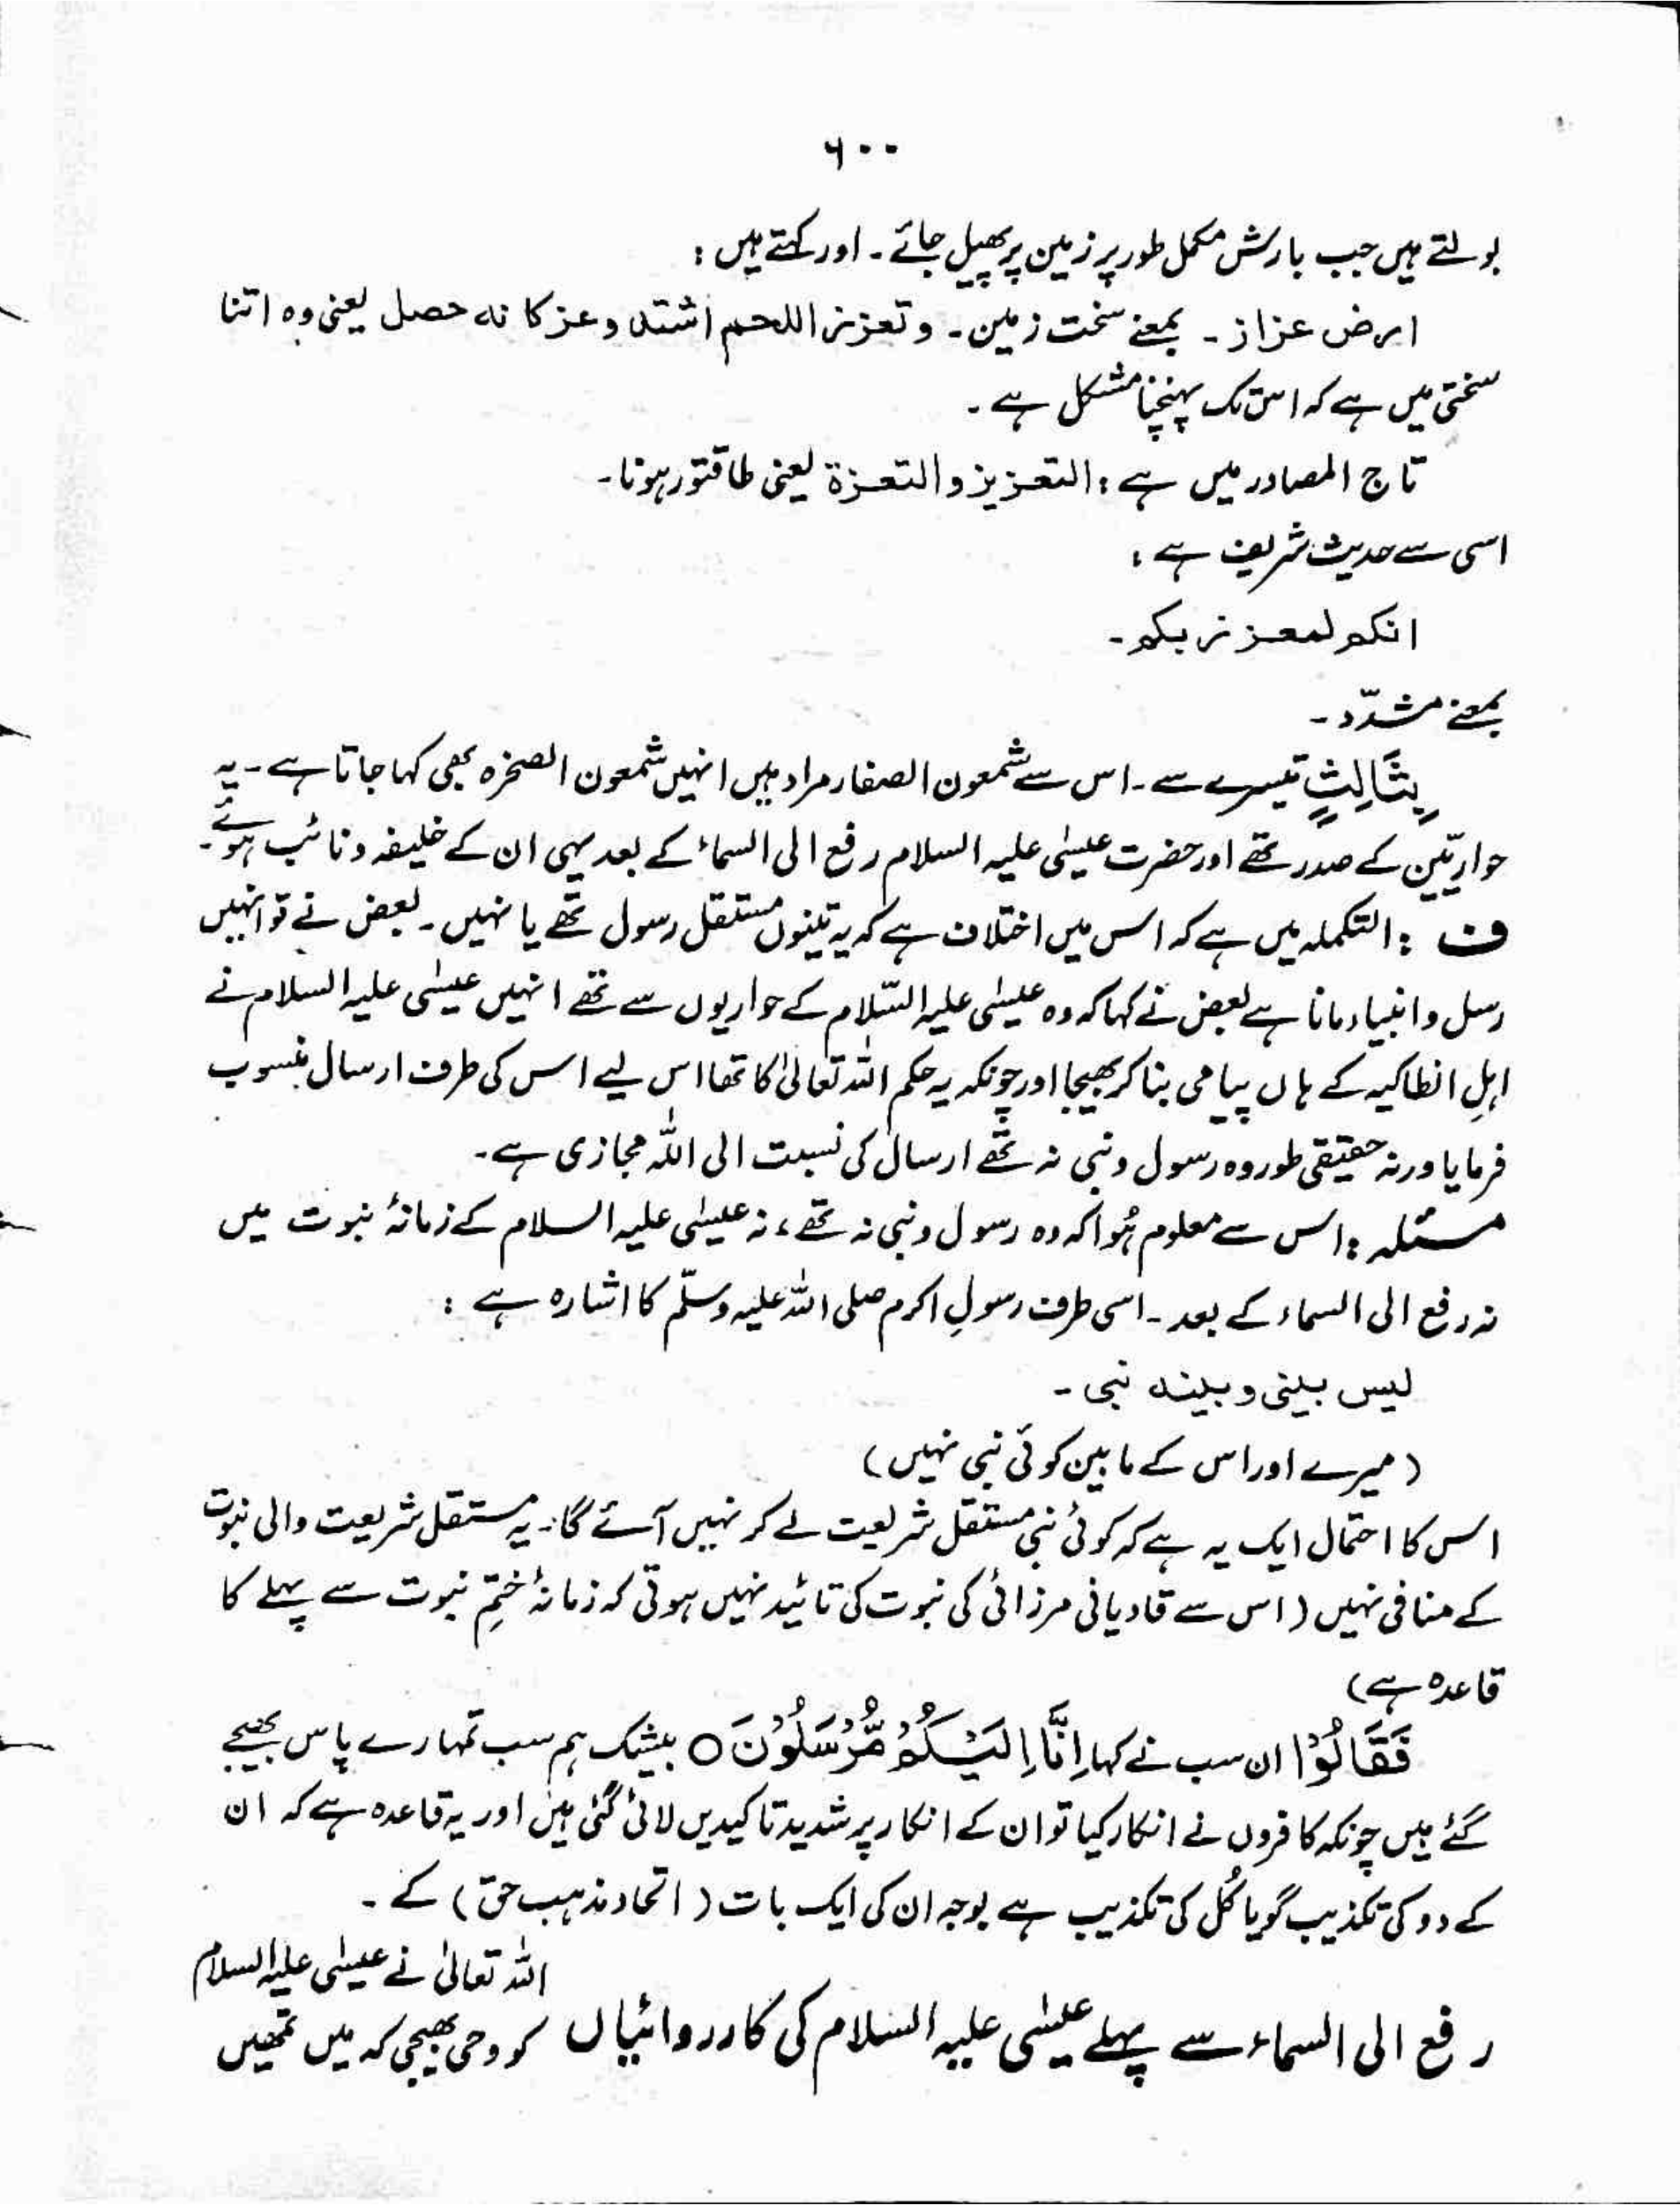 ۶۰۰
بولتے ہیں جب بارش مکمل طور پر زمین پر پھیل جائے۔ اور کہتے ہیں:
ارض عزاز۔ بمعنے سخت زمین۔ وتعزز اللحم اشتد وعز کانه حصل یعنی وہ اتنا
سختی میں ہے کہ اس تک پہنچنا مشکل ہے۔
تاج المصادر میں ہے: التعزیز والتعزة یعنی طاقتور ہونا۔
اسی سے حدیث شریف ہے:
انکم لمعزز بکم۔
بمعنے مشدّد۔
بِثَالِثٍ تیسرے سے۔ اس سے شمعون الصفار مراد ہیں انہیں شمعون الصخرہ بھی کہا جاتا ہے۔ یہ
حواریّین کے صدر تھے اور حضرت عیسٰی علیہ السلام رفع الی السماء کے بعد یہی ان کے خلیفہ و نائب ہوئے۔
ف: التکملہ میں ہے کہ اس میں اختلاف ہے کہ یہ تینوں مستقل رسول تھے یا نہیں۔ بعض نے تو انہیں
رسل و انبیاء مانا ہے بعض نے کہا کہ وہ عیسٰی علیہ السّلام کے حواریوں سے تھے انہیں عیسٰی علیہ السلام نے
اہلِ انطاکیہ کے ہاں پیامی بنا کر بھیجا اور چونکہ یہ حکم اللہ تعالیٰ کا تھا اس لیے اس کی طرف ارسال منسوب
فرمایا ورنہ حقیقی طور وہ رسول ونبی نہ تھے ارسال کی نسبت الی اللہ مجازی ہے۔
مسئلہ: اس سے معلوم ہُوا کہ وہ رسول ونبی نہ تھے، نہ عیسٰی علیہ السلام کے زمانۂ نبوت میں
نہ رفع الی السماء کے بعد۔ اسی طرف رسولِ اکرم صلی اللہ علیہ وسلّم کا اشارہ ہے:
لیس بینی وبینه نبی۔
(میرے اور اس کے مابین کوئی نبی نہیں)
اس کا احتمال ایک یہ ہے کہ کوئی نبی مستقل شریعت لے کر نہیں آئے گا۔ یہ مستقل شریعت والی نبوت
کے منافی نہیں (اس سے قادیانی مرزائی کی نبوت کی تائید نہیں ہوتی کہ زمانۂ ختمِ نبوت سے پہلے کا
قاعدہ ہے)
فَقَالُوْا ان سب نے کہا اِنَّا اِلَیْکُمْ مُّرْسَلُوْنَ ○ بیشک ہم سب تمہارے پاس بھیجے
گئے ہیں چونکہ کافروں نے انکار کیا تو ان کے انکار پر شدید تاکیدیں لائی گئی ہیں اور یہ قاعدہ ہے کہ ان
کے دو کی تکذیب گویا کُل کی تکذیب ہے بوجہ ان کی ایک بات (اتحاد مذہب حق) کے۔
اللہ تعالیٰ نے عیسٰی علیہ السلام
رفع الی السماء سے پہلے عیسٰی علیہ السلام کی کارروائیاں کو وحی بھیجی کہ میں تمھیں